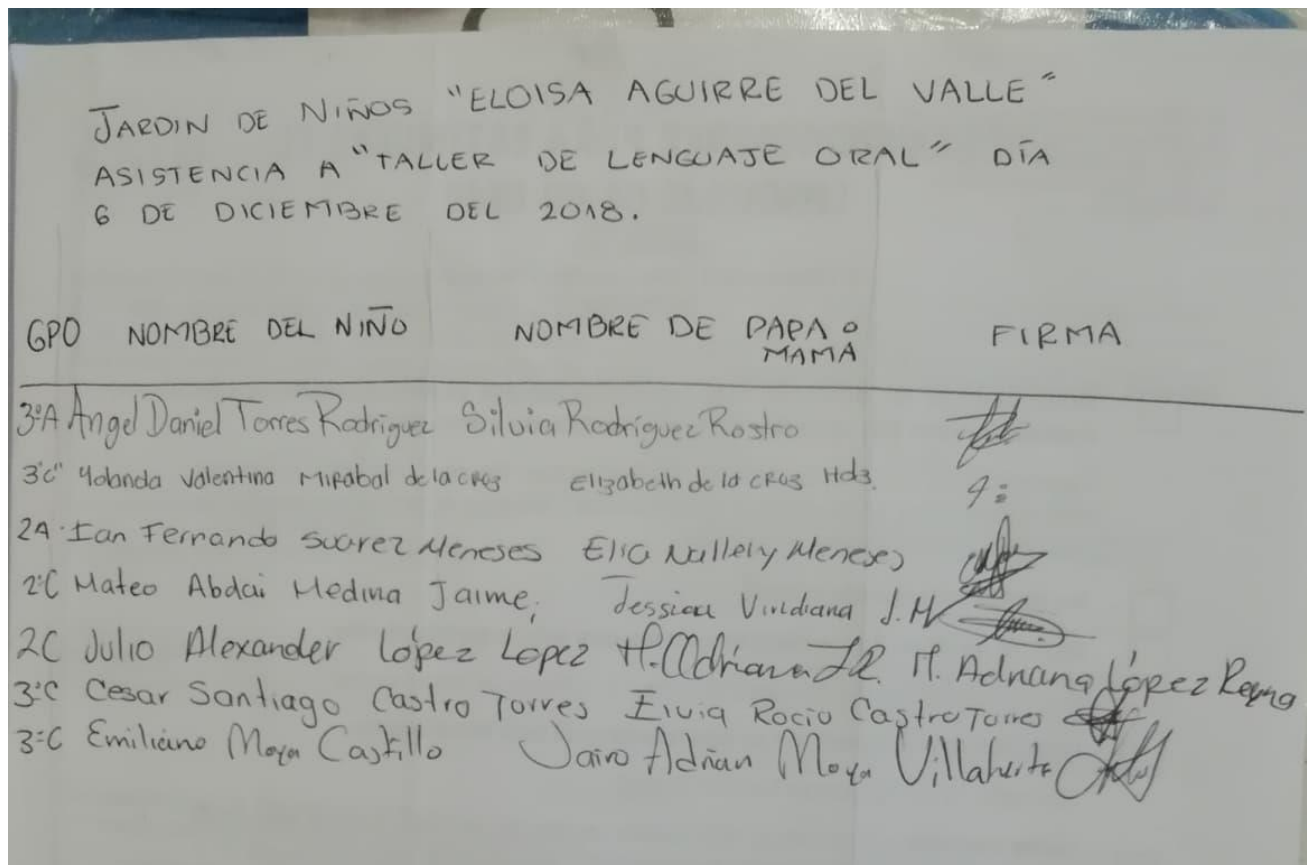 JARDIN DE NIÑOS "ELOISA AGUIRRE DEL VALLE"
ASISTENCIA A "TALLER DE LENGUAJE ORAL" DÍA
6 DE DICIEMBRE DEL 2018.
GPO NOMBRE DEL NIÑO NOMBRE DE PAPA o MAMA FIRMA
3ºA Angel Daniel Torres Rodriguez Silvia Rodríguez Rostro
3ºC" Yolanda Valentina Mirabal de la cruz Elizabeth de la cruz Hdz.
2A Ian Fernando Suarez Meneses Elia Nallely Meneses
2ºC Mateo Abdai Medina Jaime, Jessica Viridiana J.M
2C Julio Alexander López Lopez M. Adriana L.R. M. Adriana López Reyna
3ºC Cesar Santiago Castro Torres Elvia Rocio Castro Torres
3ºC Emiliano Moya Castillo Jairo Adrian Moya